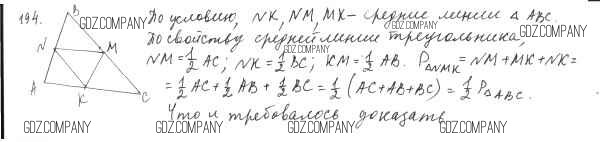 194.
B
N
M
A
K
C
GDZ.COMPANY
По условию, NK, NM, MK – средние линии Δ ABC.
GDZ.COMPANY
GDZ.COMPANY
По свойству средней линии треугольника,
GDZ.COMPANY
NM = 1/2 AC; NK = 1/2 BC; KM = 1/2 AB. P△NMK = NM + MK + NK =
= 1/2 AC + 1/2 AB + 1/2 BC = 1/2 (AC + AB + BC) = 1/2 P△ABC.
Что и требовалось доказать
GDZ.COMPANY GDZ.COMPANY GDZ.COMPANY GDZ.COMPANY